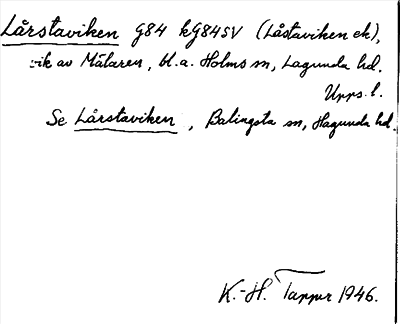 Lårstaviken G84 kG84SV (Låstaviken ek),
vik av Mälaren, bl.a. Holms sn, Lagunda hd.
Upps. l.
Se Lårstaviken, Balingsta sn, Hagunda hd.
K.-H. Tapper 1946.